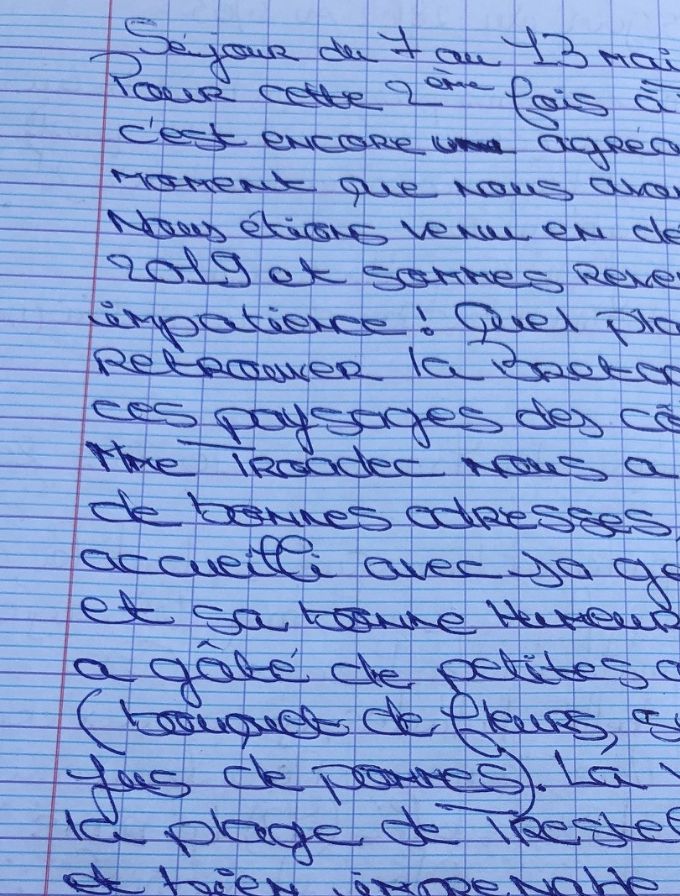 Séjour du 7 au 13 mai
Pour cette 2ème fois à
c'est encore un agréa
moment que nous avo
Nous étions venu en dé
2019 et sommes reve
impatience! Quel pla
retrouver la Bretag
ces paysages des cô
Mme Troadec nous a
de bonnes adresses,
accueilli avec sa ge
et sa bonne humeur
a gâté de petites a
(bouquet de fleurs, s
jus de pommes). La v
la plage de Treste
et bien imprenable